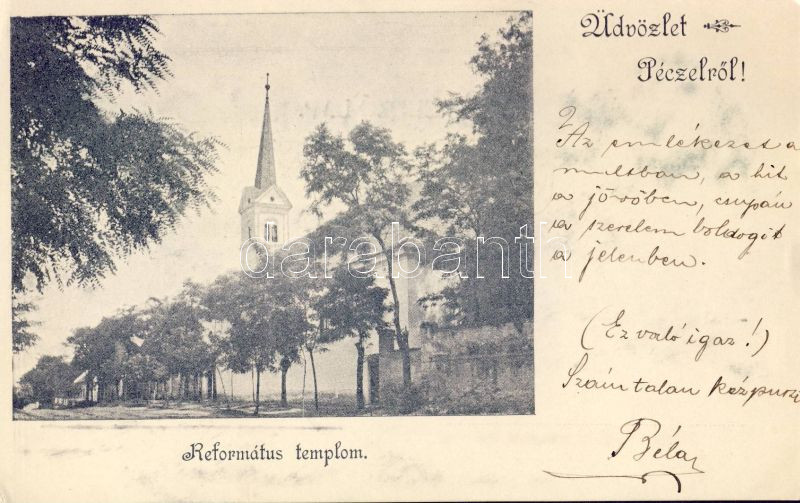 Üdvözlet
Péczelről!
Az emlékezet a
multban, a hit
a jövőben, csupán
a szerelem boldogit
a jelenben.
(Ez való igaz!)
Számtalan kézpuszi
Béla
Református templom.
darabanth